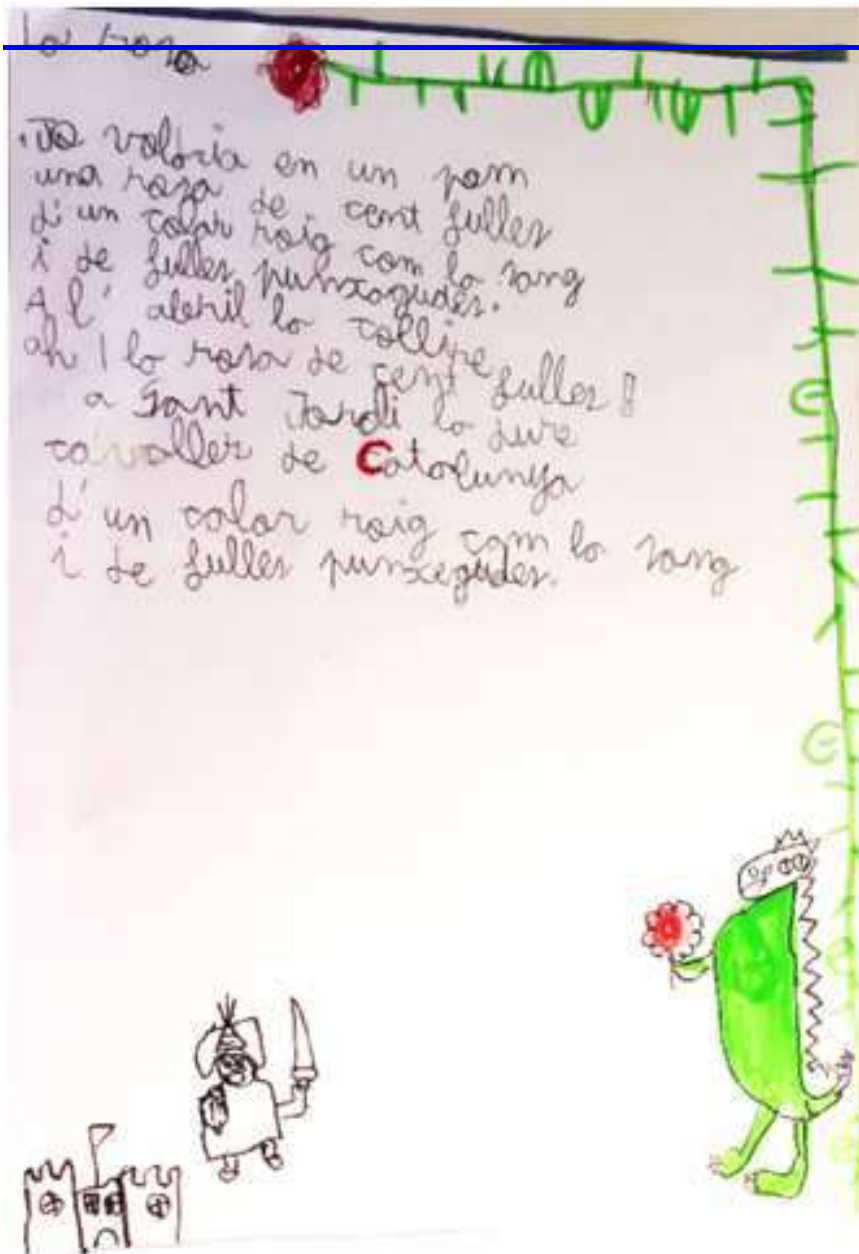 la rosa
Jo voldria en un pom
una rosa de cent fulles
d'un color roig com la sang
i de fulles punxagudes.
A l' abril la colliré
ah! la rosa de cent fulles!
a Sant Jordi la duré
cavaller de Catalunya
d'un color roig com la sang
i de fulles punxegudes.